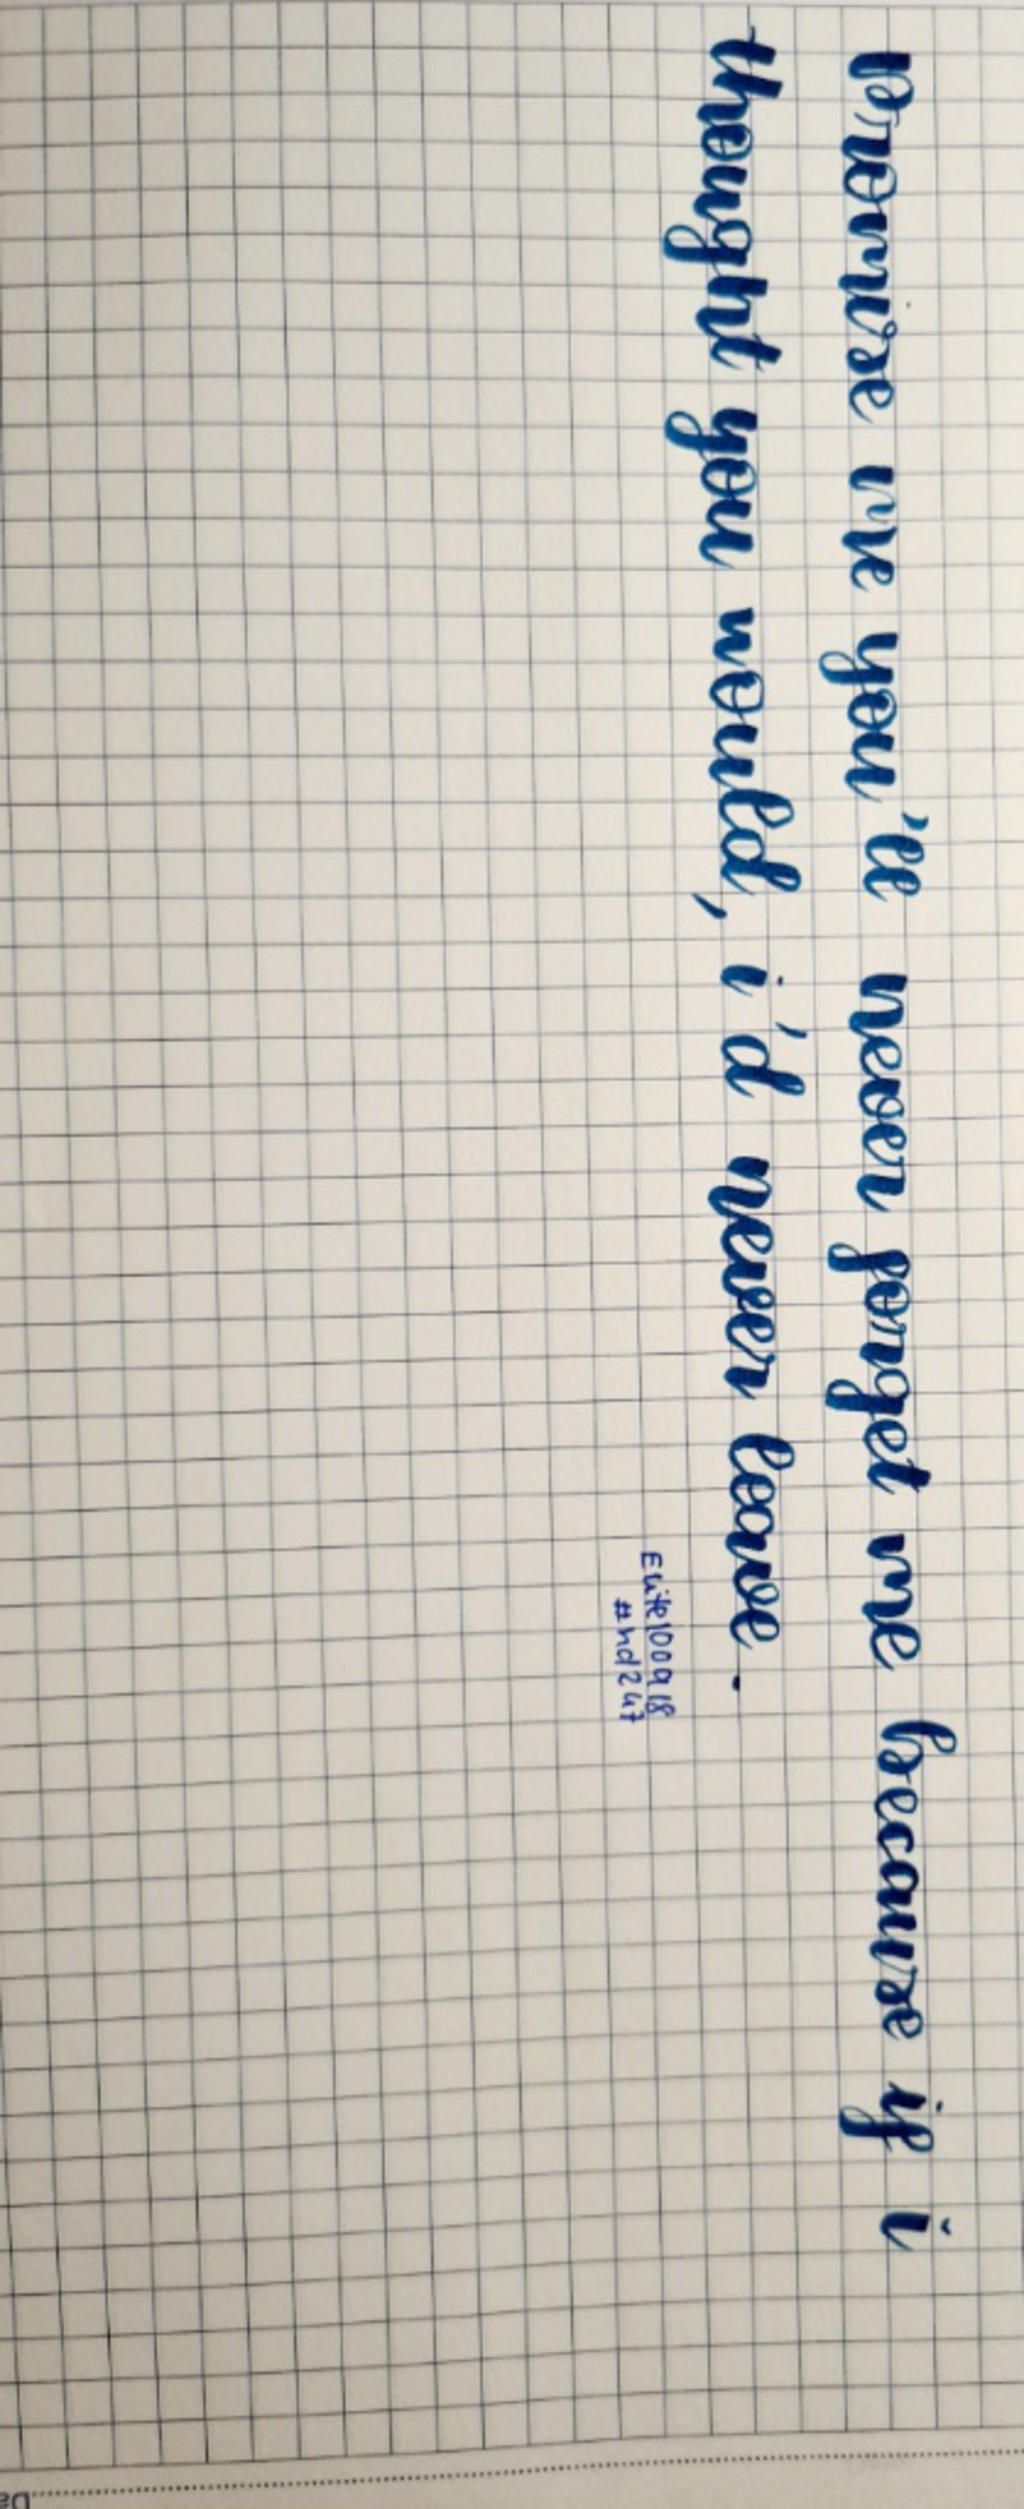 Promise me you'll never forget me because if i
thought you would, i'd never leave.
Elite100918
#hd247